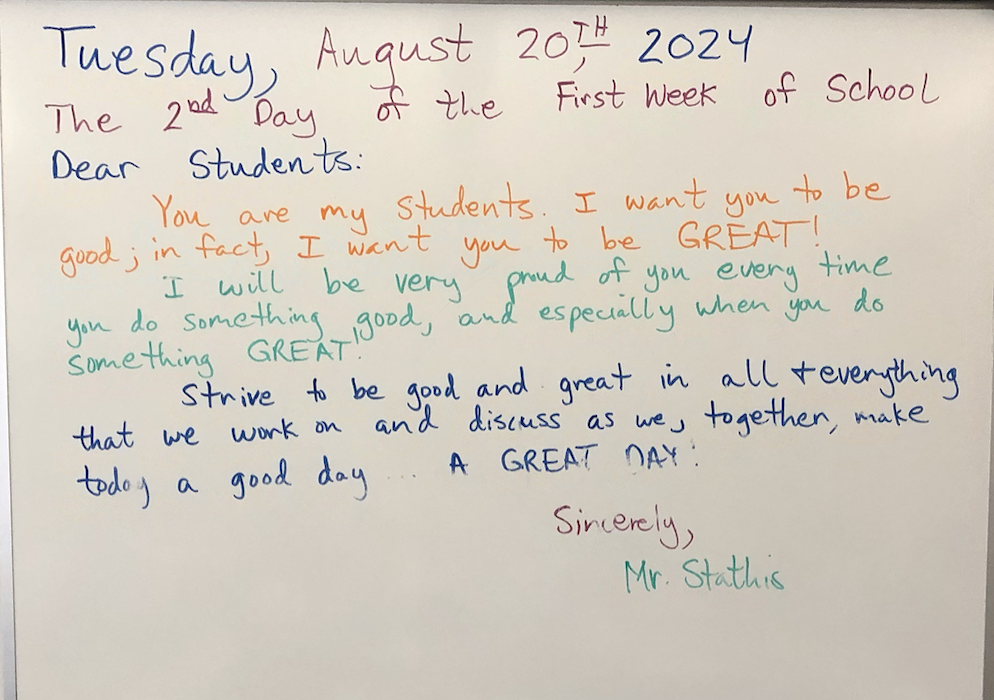 Tuesday, August 20TH, 2024
The 2nd Day of the First Week of School
Dear Students:
You are my students. I want you to be
good; in fact, I want you to be GREAT!
I will be very proud of you every time
you do something good, and especially when you do
something GREAT!
Strive to be good and great in all + everything
that we work on and discuss as we, together, make
today a good day ... A GREAT DAY!
Sincerely,
Mr. Stathis